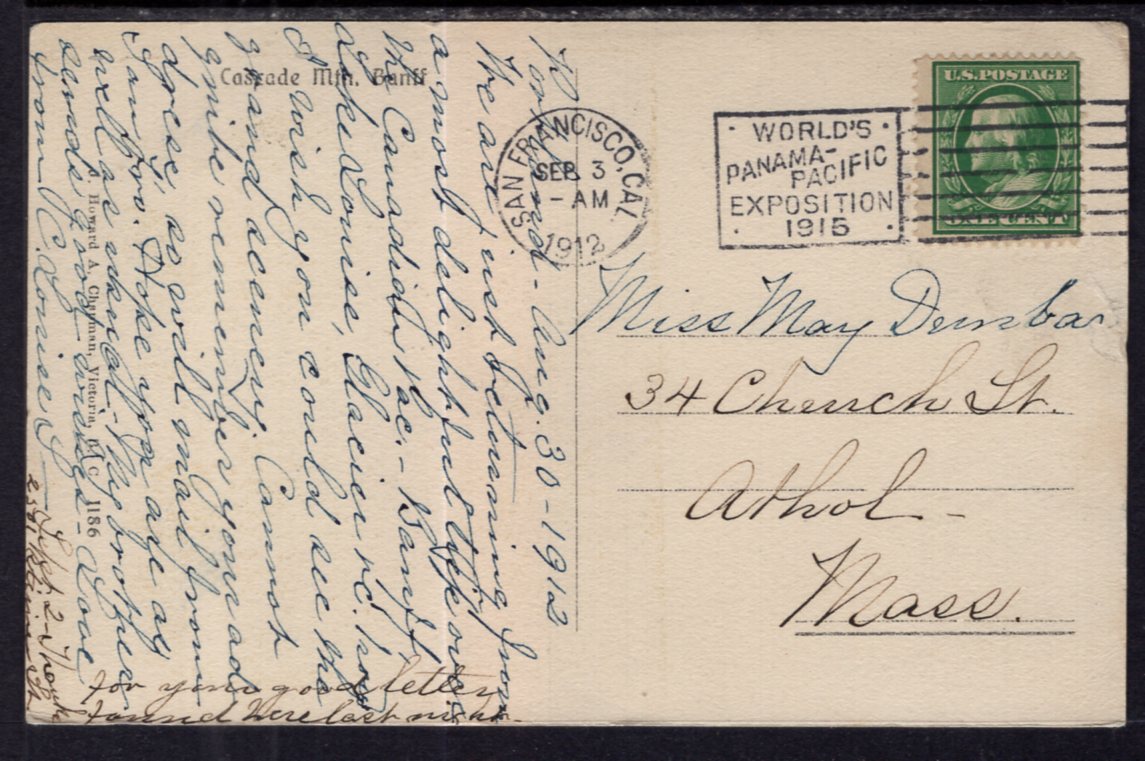 Cascade Mtn. Banff
Portland - Aug. 30 - 1912
We are just returning from
a most delightful trip over
the Canadian Pac. - Banff,
Lake Louise, Glacier &c. how
I wish you could see the
grand scenery. Cannot
quite remember your ad-
dress, so will mail from
San Fran. Hope you are as
well as usual - My brother
sends good wishes - Love
from R. Louise S
- Sept. 2 - Thanks
for your good letter
found here last night.
J. Howard A. Chapman, Victoria, B. C. 1186
SAN FRANCISCO, CAL.
SEP. 3
- AM
1912
WORLD'S
PANAMA-
PACIFIC
EXPOSITION
1915
U.S. POSTAGE
ONE CENT
Miss May Dunbar
34 Church St.
Athol -
Mass.